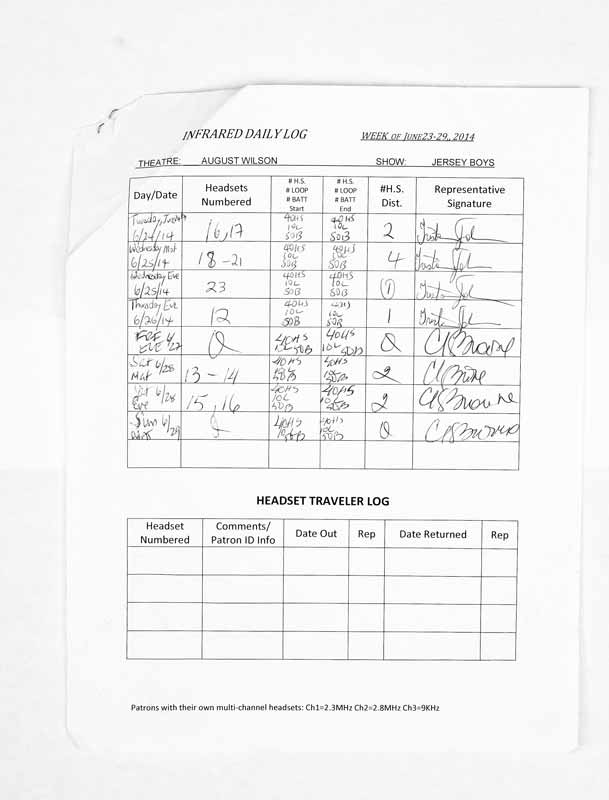 INFRARED DAILY LOG WEEK OF JUNE23-29,, 2014
THEATRE: AUGUST WILSON SHOW: JERSEY BOYS
Day/Date
Headsets
Numbered
# H.S.
# LOOP
# BATT
Start
# H.S.
# LOOP
# BATT
End
#H.S.
Dist.
Representative
Signature
Tuesday,
6/24/14 16,17 40HS 10L 50B 40HS 10L 50B 2
Wednesday Mat
6/25/14 18-21 40HS 10L 50B 40HS 10L 50B 4
Wednesday Eve
6/25/14 23 40HS 10L 50B 40HS 10L 50B 1
Thursday Eve
6/26/14 12 40HS 10L 50B 40HS 10L 50B 1
EVE 27 0 40HS 10L 50B 40HS 10L 50B 0 CBrowne
Sat 6/28
Mat 13-14 40HS 10L 50B 40HS 10L 50B 2
Sat 6/28
Eve 15,16 40HS 10L 50B 40HS 10L 50B 2 CBBrowne
Sun 6/29 40HS 10L 50B 40HS 10L 50B 0 CBBrowne
HEADSET TRAVELER LOG
Headset
Numbered
Comments/
Patron ID Info
Date Out
Rep
Date Returned
Rep
Patrons with their own multi-channel headsets: Ch1=2.3MHz Ch2=2.8MHz Ch3=9KHz